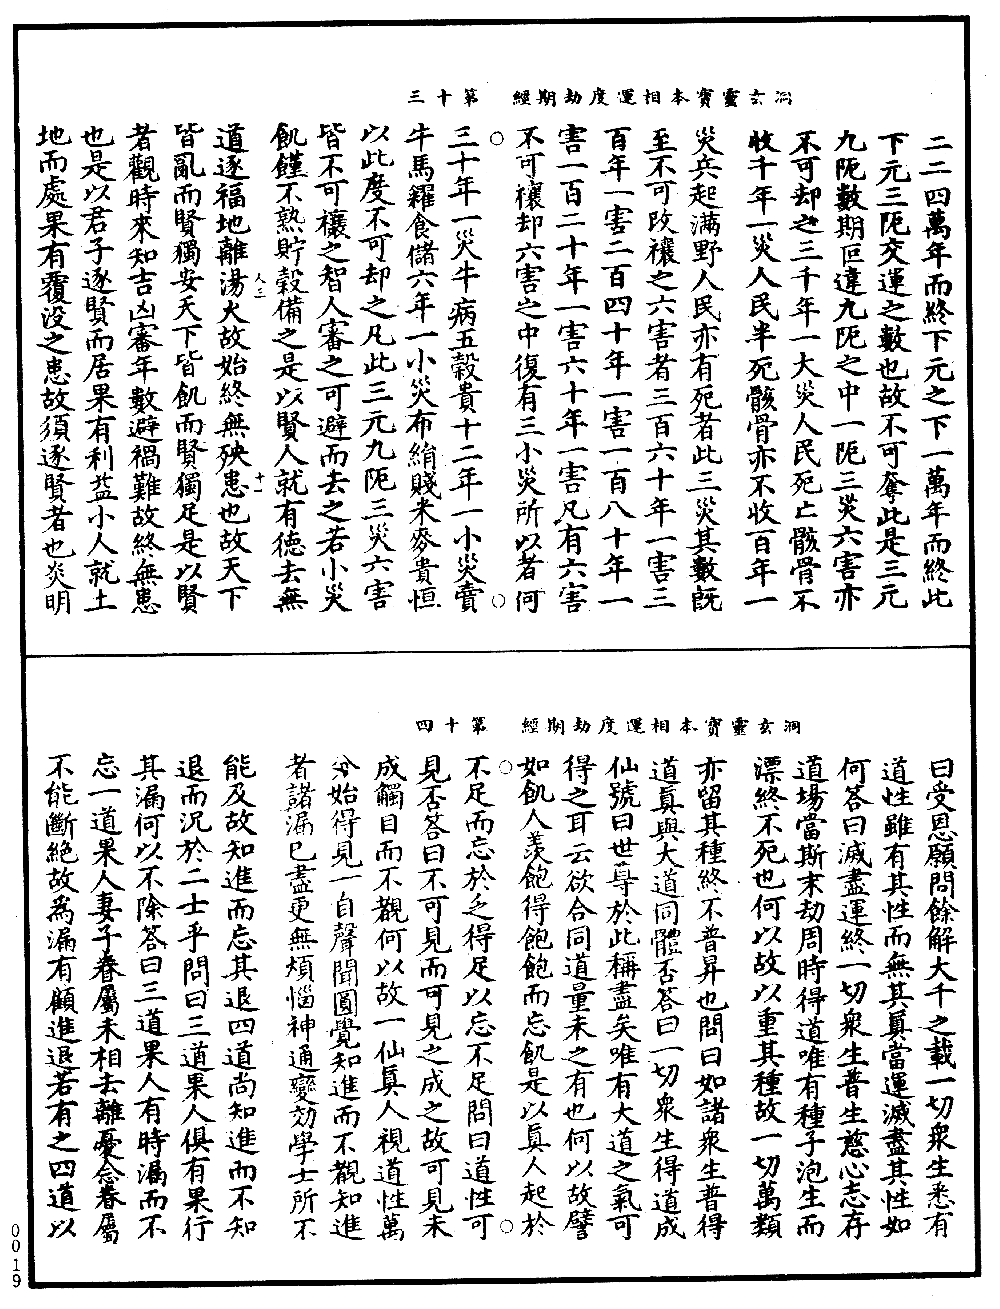 洞玄靈寶本相運度劫期經　第十三
二二四萬年而終下元之下一萬年而終此
下元三阨交運之數也故不可奪此是三元
九阨數期叵違九阨之中一阨三災六害亦
不可却之三千年一大災人民死亡骸骨不
收千年一災人民半死骸骨亦不收百年一
災兵起滿野人民亦有死者此三災其數既
至不可改禳之六害者三百六十年一害三
百年一害二百四十年一害一百八十年一
害一百二十年一害六十年一害凡有六害
不可禳却六害之中復有三小災所以者何
三十年一災牛病五穀貴十二年一小災賣
牛馬糴食儲六年一小災布絹賤米麥貴恒
以此度不可却之凡此三元九阨三災六害
皆不可禳之智人審之可避而去之若小災
飢饉不熟貯穀備之是以賢人就有德去無
道逐福地離湯火故始終無殃患也故天下
皆亂而賢獨安天下皆飢而賢獨足是以賢
者觀時來知吉凶審年數避禍難故終無患
也是以君子逐賢而居果有利益小人就土
地而處果有覆没之患故須逐賢者也炎明
人三
十一
洞玄靈寶本相運度劫期經　第十四
曰受恩願問餘解大千之載一切衆生悉有
道性雖有其性而無其真當運滅盡其性如
何答曰滅盡運終一切衆生普生慈心志存
道場當斯末劫周時得道唯有種子泡生而
漂終不死也何以故以重其種故一切萬類
亦留其種終不普昇也問曰如諸衆生普得
道真與大道同體否答曰一切衆生得道成
仙號曰世尊於此稱盡矣唯有大道之氣可
得之耳云欲合同道量未之有也何以故譬
如飢人羨飽得飽飽而忘飢是以真人起於
不足而忘於之得足以忘不足問曰道性可
見否答曰不可見而可見之成之故可見未
成觸目而不觀何以故一仙真人視道性萬
分始得見一自聲聞圓覺知進而不觀知進
者諸漏已盡更無煩惱神通變効學士所不
能及故知進而忘其退四道尚知進而不知
退而況於二士乎問曰三道果人俱有果行
其漏何以不除答曰三道果人有時漏而不
忘一道果人妻子眷屬未相去離憂念眷屬
不能斷絕故為漏有顧進退若有之四道以
0019